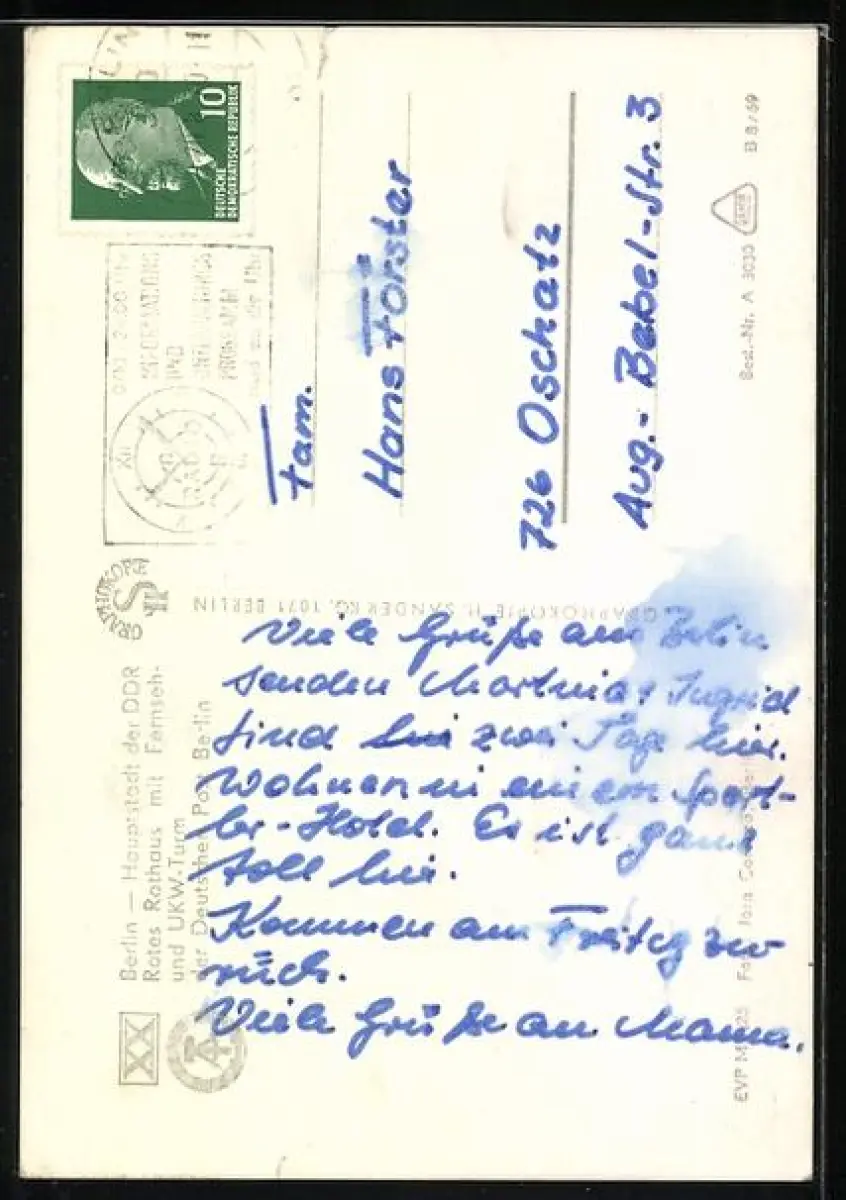 10
DEUTSCHE
DEMOKRATISCHE REPUBLIK
INFORMATIONS
UND
UNTERHALTUNGS
PROGRAMM
rund um die Uhr
XII
RADIO
Fam.
Hans Förster
726 Oschatz
Aug.-Bebel-Str. 3
GRAPHOKOPIE
GRAPHOKOPIE H. SANDER KG, 1071 BERLIN
Berlin — Hauptstadt der DDR
Rotes Rathaus mit Fernseh-
und UKW-Turm
der Deutschen Post Berlin
XX
Viele Grüße aus Berlin
senden Ingrid
Sind zwei Tage hier.
Wohnen in einem Sport-
ler-Hotel. Es ist ganz
toll hier.
Kommen am Freitag zu
rück.
Viele Grüße an Mama.
EVP M
Best.-Nr. A 3030 B 8/69